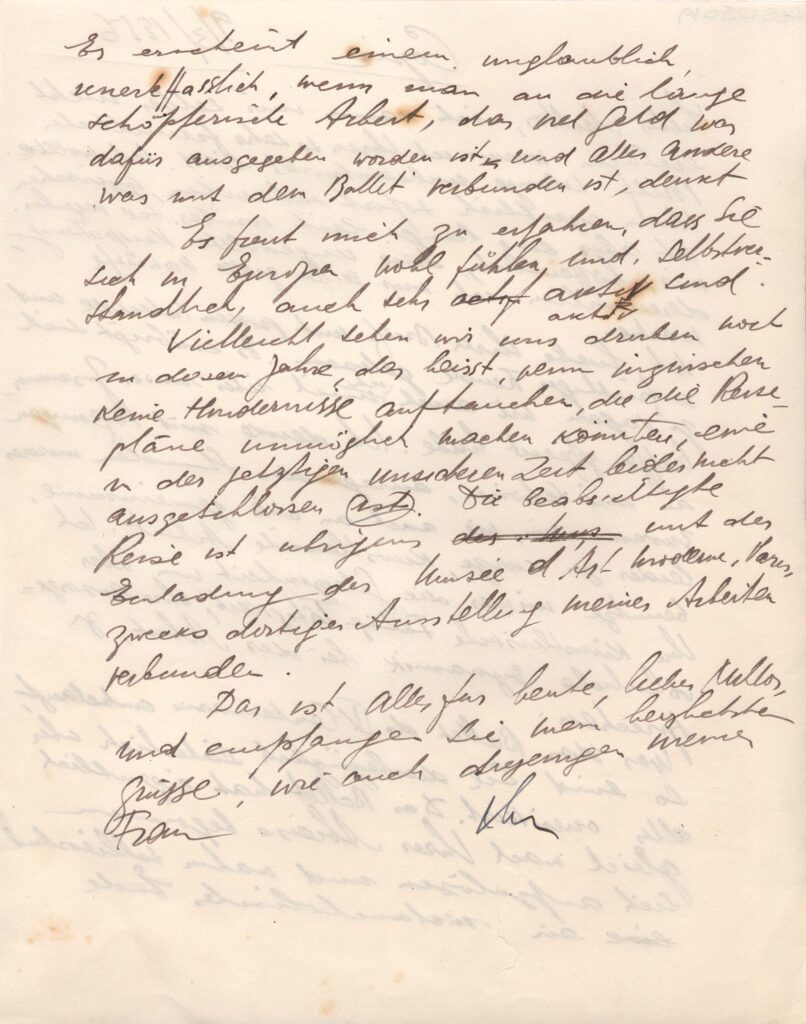 Es erscheint einem unglaublich,
unerfasslich, wenn man an die lange
schöpferische Arbeit, das viel Geld was
dafür ausgegeben worden ist, und alles andere
was mit dem Ballet verbunden ist, denkt
Es freut mich zu erfahren, dass Sie
sich in Europa wohl fühlen und, selbstver-
ständlich, auch sehr aktiv sind.
aktiv
Vielleicht sehen wir uns drüben noch
in diesem Jahre, das heisst, wenn inzwischen
keine Hindernisse auftauchen, die die Reise-
pläne unmöglich machen könnten, eine
in der jetztigen unsicheren Zeit leider nicht
ausgeschlossen ist. Die beabsichtigte
Reise ist übrigens mit der
Einladung des Musée d'Art moderne, Paris,
zwecks dortiger Ausstellung meiner Arbeiten
verbunden.
Das ist alles für heute, lieber Millos,
und empfangen Sie mein herzlichsten
Grüsse, wie auch diejenigen meiner
Frau
Ihr